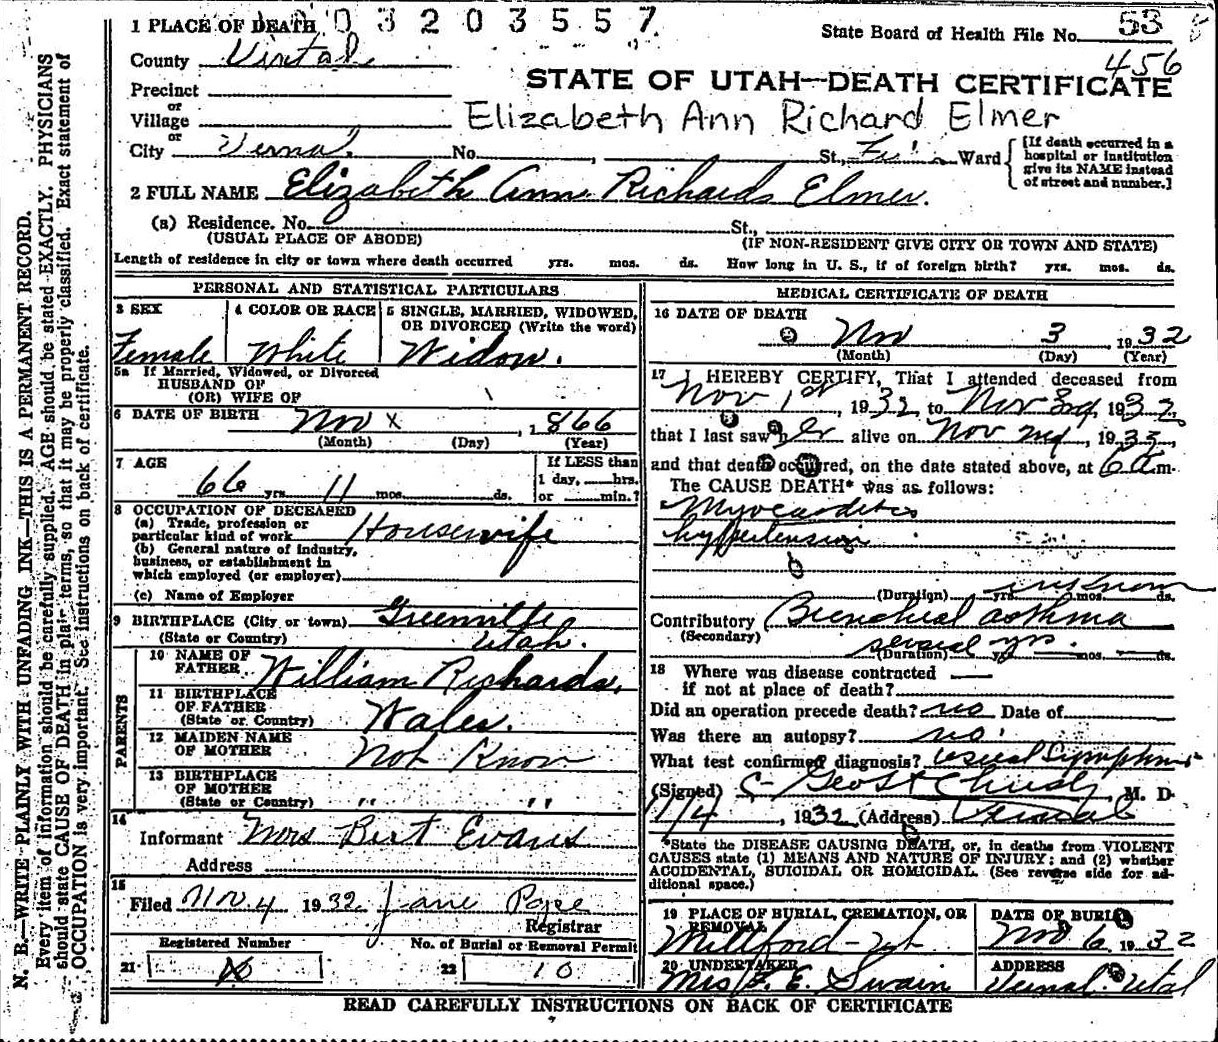 N. B.—WRITE PLAINLY WITH UNFADING INK—THIS IS A PERMANENT RECORD.
Every item of information should be carefully supplied. AGE should be stated EXACTLY. PHYSICIANS
should state CAUSE OF DEATH in plain terms, so that it may be properly classified. Exact statement of
OCCUPATION is very important. See instructions on back of certificate.
03203557
1 PLACE OF DEATH
State Board of Health File No. 53
456
County Uintah
STATE OF UTAH—DEATH CERTIFICATE
Precinct
or
Village
Elizabeth Ann Richard Elmer
or
City Vernal. No. St., Ward
[If death occurred in a hospital or institution give its NAME instead of street and number.]
2 FULL NAME Elizabeth Ann Richards Elmer.
(a) Residence. No. St.,
(USUAL PLACE OF ABODE) (IF NON-RESIDENT GIVE CITY OR TOWN AND STATE)
Length of residence in city or town where death occurred yrs. mos. ds. How long in U. S., if of foreign birth? yrs. mos. ds.
PERSONAL AND STATISTICAL PARTICULARS
3 SEX
Female
4 COLOR OR RACE
White
5 SINGLE, MARRIED, WIDOWED,
OR DIVORCED (Write the word)
Widow.
5a If Married, Widowed, or Divorced
HUSBAND OF
(OR) WIFE OF
6 DATE OF BIRTH Nov x , 1866
(Month) (Day) (Year)
7 AGE
66 yrs. 11 mos. ds.
If LESS than
1 day, hrs.
or min.?
8 OCCUPATION OF DECEASED
(a) Trade, profession or
particular kind of work Housewife
(b) General nature of industry,
business, or establishment in
which employed (or employer)
(c) Name of Employer
9 BIRTHPLACE (City or town) Greenville
(State or Country) Utah.
PARENTS
10 NAME OF
FATHER William Richards.
11 BIRTHPLACE
OF FATHER
(State or Country) Wales.
12 MAIDEN NAME
OF MOTHER Not Know
13 BIRTHPLACE
OF MOTHER
(State or Country) " "
14
Informant Mrs Bert Evans
Address
15
Filed Nov. 4 1932 Jane Pope
Registrar
Registered Number No. of Burial or Removal Permit
21 22 10
MEDICAL CERTIFICATE OF DEATH
16 DATE OF DEATH
Nov 3, 1932
(Month) (Day) (Year)
17 I HEREBY CERTIFY, That I attended deceased from
Nov 1st, 1932 to Nov 3rd, 1932,
that I last saw her alive on Nov 2nd, 1932,
and that death occurred, on the date stated above, at 6 a m.
The CAUSE DEATH* was as follows:
Myocarditis
hypertension
(Duration) yrs. unknown mos. ds.
Contributory Bronchial asthma
(Secondary)
several yrs.
(Duration) yrs. mos. ds.
18 Where was disease contracted —
if not at place of death?
Did an operation precede death? no Date of
Was there an autopsy? no.
What test confirmed diagnosis? usual Symptoms
(Signed) M. D.
11/4, 1932 (Address) Vernal
*State the DISEASE CAUSING DEATH, or, in deaths from VIOLENT
CAUSES state (1) MEANS AND NATURE OF INJURY; and (2) whether
ACCIDENTAL, SUICIDAL OR HOMICIDAL. (See reverse side for ad-
ditional space.)
19 PLACE OF BURIAL, CREMATION, OR
REMOVAL
Millford - Ut
DATE OF BURIAL
Nov 6, 1932
20 UNDERTAKER
Mrs E. Swain
ADDRESS
Vernal. Utah
READ CAREFULLY INSTRUCTIONS ON BACK OF CERTIFICATE